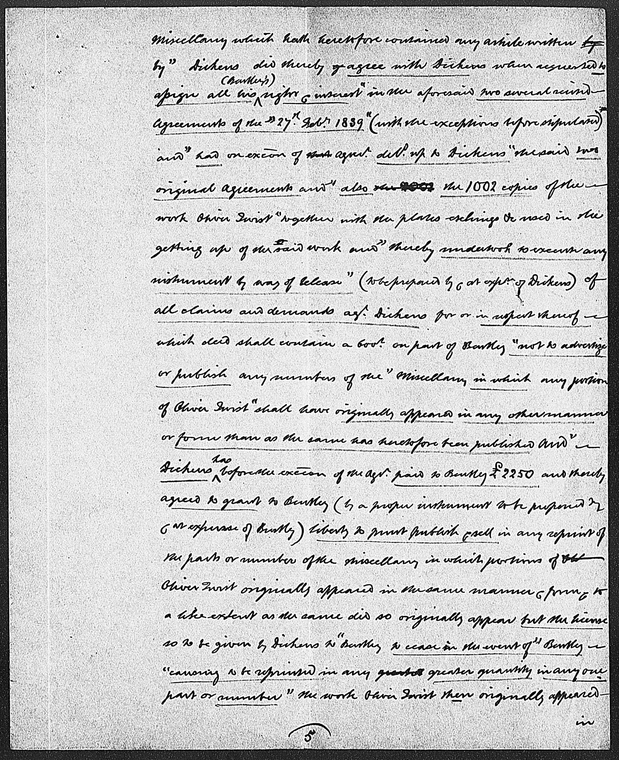 Miscellany which hath heretofore contained any article written by
by" Dickens did thereby agree with Dickens when requested to
(Bentley's)
assign all his rights & interest "in the aforesaid two several recited
Agreements of the "27th Feb. 1839" (with the exceptions before stipulated)"
and" had on exec'on of agrt. deld. up to Dickens "the said two
original agreements and" also the 1002 copies of the
work Oliver Twist "together with the plates etchings &c used in the
getting up of the said work and" thereby undertook to execute any
instrument by way of release" (to be prepared by & at exps. of Dickens) of
all claims and demands agt. Dickens for or in respect thereof
which deed shall contain a covt. on part of Bentley "not to advertize
or publish any numbers of the" Miscellany in which any portion
of Oliver Twist "shall have originally appeared in any other manner
or form than as the same has heretofore been published And"
has
Dickens before the exec'on of the Agt. paid to Bentley £2250 and thereby
agreed to grant to Bentley (by a proper instrument to be prepared by
& at expense of Bentley) liberty to print publish & sell in any reprint of
the parts or number of the Miscellany in which portions of
Oliver Twist originally appeared in the same manner & form & to
a like extent as the same did so originally appear but the license
so to be given by Dickens to "Bentley to cease in the event of" Bentley
"causing to be reprinted in any greater quantity in any one
part or number" the work Oliver Twist then originally appeared
in
5